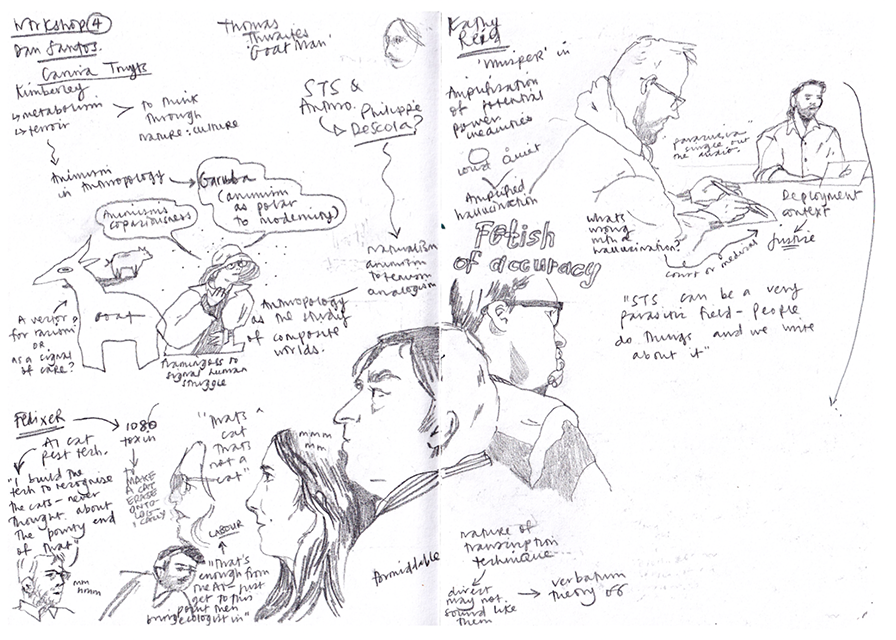 Workshop 4
Dan Santos.
Kimberley
↳ metabolism
↳ terroir
> to think
through
nature: culture
Animism
in Anthropology →
Garuba
(animism
as polar
to modernity)
Animism is
Thomas
Thwaites
'Goat Man'
STS &
Anthro.
↳ Philippe
Descola?
naturalism
animism
totemism
analogism
goat
A vector
for
or
as a signal
of care?
Anthropology
as the study
of composite
worlds.
signal human
struggle
Felixer
AI cat
pest tech.
1080
toxin
MAKE
A CAT
ERASE
ONTO-
LOGICALLY
"I build the
tech to recognise
the cats – never
thought about
the pointy end
of that"
mm
hmm
"That's a
cat
that's
not a
cat"
LABOUR
"That's
enough from
the AI – just
get to this
point then
bring ecologist in"
mmm
mm
formidable
Kathy
Reid
'Whisper' in
Amplification
of potential
power
inequities
loud quiet
Amplified
hallucination
Fetish
of accuracy
single out
one audio.
Deployment
context
justice
what's
wrong
with a
hallucination?
court or medical
"STS can be a very
parasitic field – people
do things and we write
about it"
nature of
transcription
technique
direct
may not
sound like
them
→ verbatim
theory of